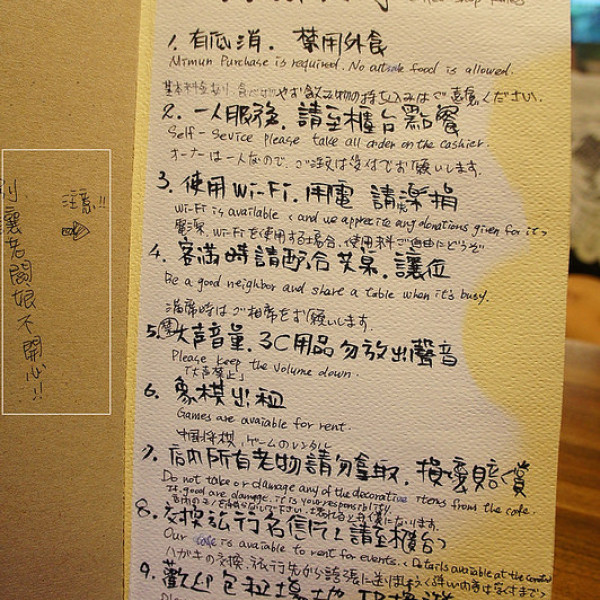 注意!!
別讓老闆娘不開心!!
1. 有低消. 禁用外食
Mimun Purchase is required. No outside food is allowed.
2. 一人服務. 請至櫃台點餐
Self-Sevice please take all order on the cashier.
オーナーは一人なので、ご注文は受付でお願いします.
3. 使用Wi-Fi. 用電 請樂捐
Wi-Fi is available (and we apprecite any donations given for it)
電源、Wi-Fiを使用する場合、使用料ご自由にどうぞ
4. 客滿時請配合共桌、讓位
Be a good neighbor and share a table when it's busy.
満席時はご相席をお願いします.
5. 禁大声音量. 3C用品勿放出聲音
Please keep the volume down.
「大声禁止」
6. 象棋出租
Games are avaiable for rent.
中国将棋、ゲームのレンタル
7. 店內所有老物請勿拿取. 損壞賠償
Do not take or damage any of the decorative items from the cafe.
If good are damage. it is your responsibility.
8. 交換旅行名信片 請至櫃台
Our cafe is avaiable to rent for events. (Details avaiable at the counter)
9. 歡迎包租場地